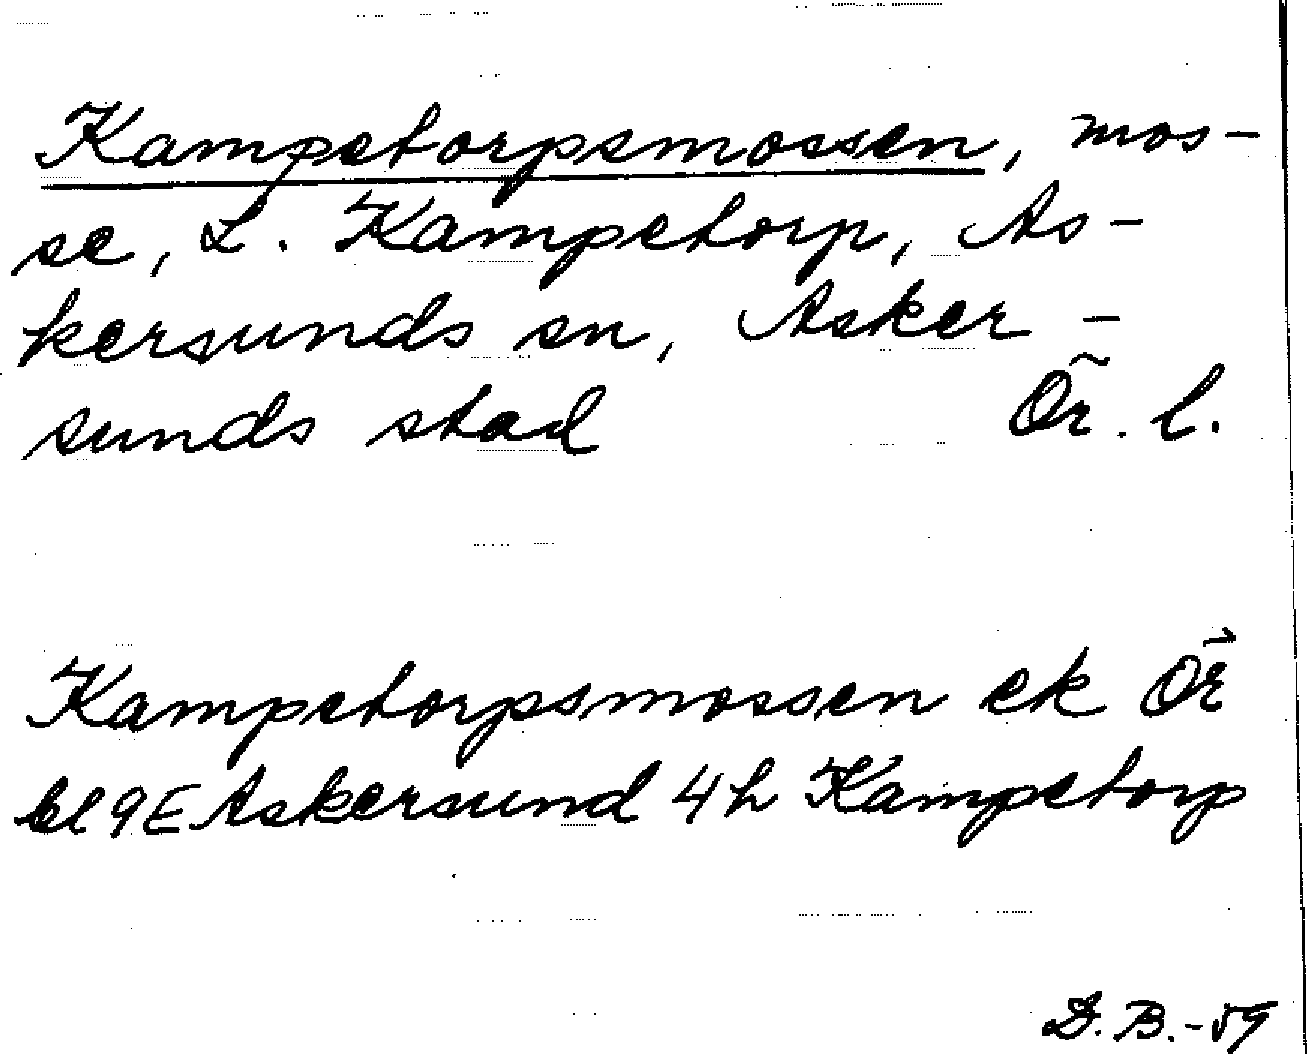 Kampetorpsmossen, mos-
se, L. Kampetorp, As-
kersunds sn, Asker-
sunds stad Ör. l.
Kampetorpsmossen ek Ör
bl 9E Askersund 4h Kampetorp
D.B.-59